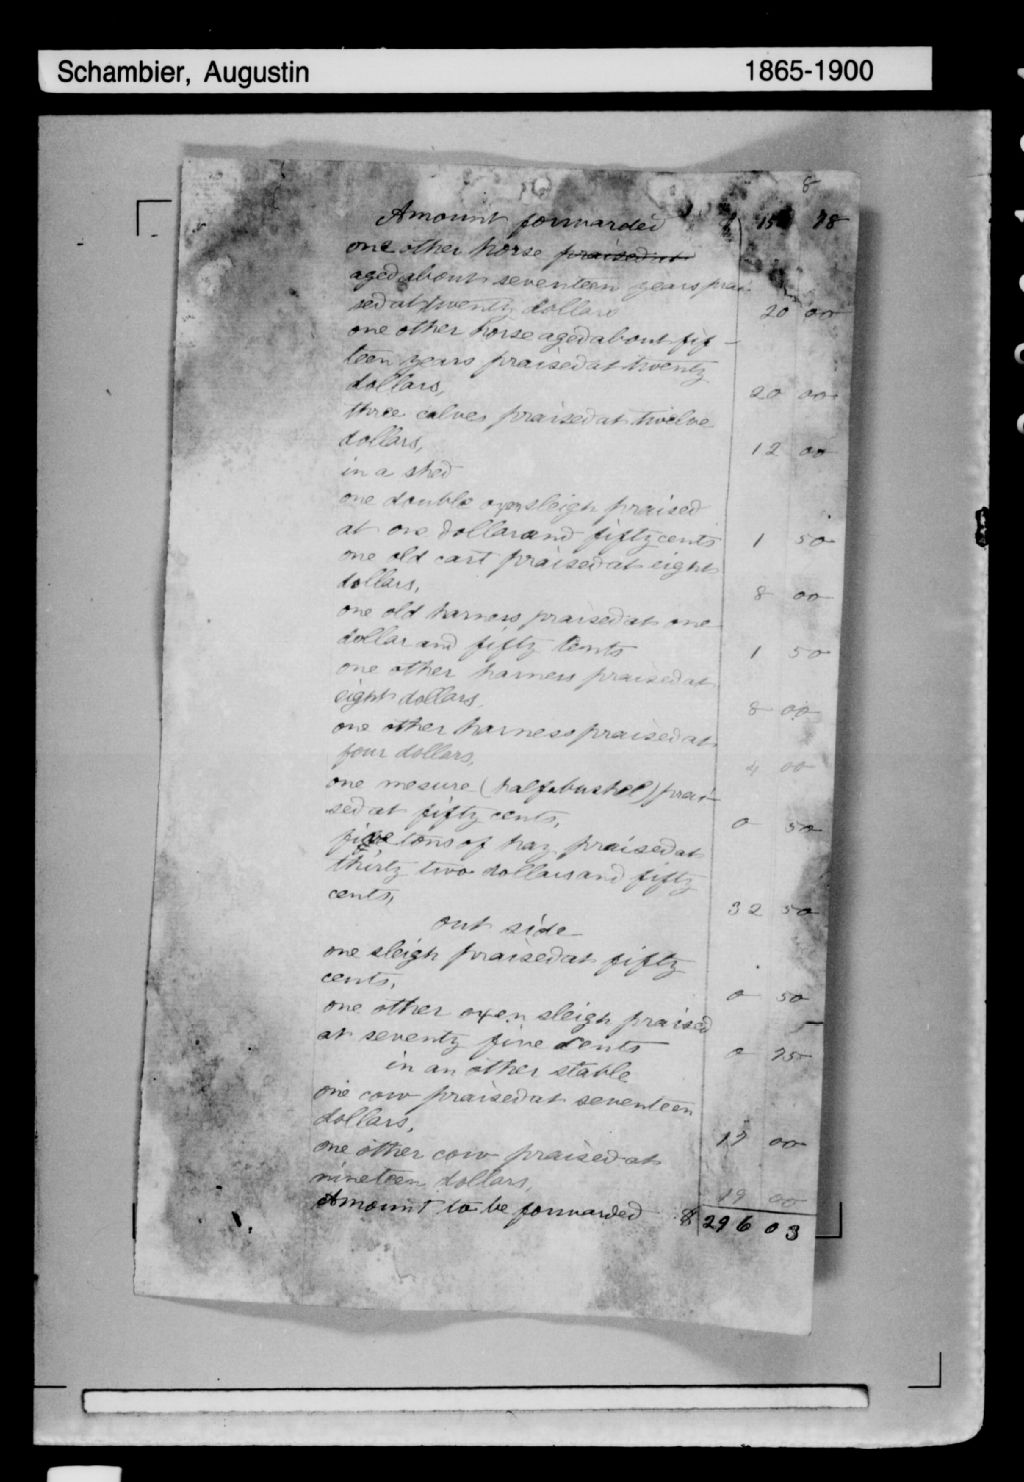 Schambier, Augustin 1865-1900
8
Amount forwarded $ 15 78
one other horse praised at
aged about seventeen years prai-
sed at twenty dollars 20 00
one other horse aged about fif-
teen years praised at twenty
dollars, 20 00
three calves praised at twelve
dollars, 12 00
in a shed
one double oxen sleigh praised
at one dollar and fifty cents 1 50
one old cart praised at eight
dollars, 8 00
one old harness praised at one
dollar and fifty cents 1 50
one other harness praised at
eight dollars, 8 00
one other harness praised at
four dollars, 4 00
one mesure (half a bushel) prai-
sed at fifty cents, 0 50
five tons of hay praised at
thirty two dollars and fifty
cents, 32 50
out side
one sleigh praised at fifty
cents, 0 50
one other oxen sleigh praised
at seventy five cents 0 75
in an other stable
one cow praised at seventeen
dollars, 17 00
one other cow praised at
nineteen dollars, 19 00
Amount to be forwarded $ 296 03